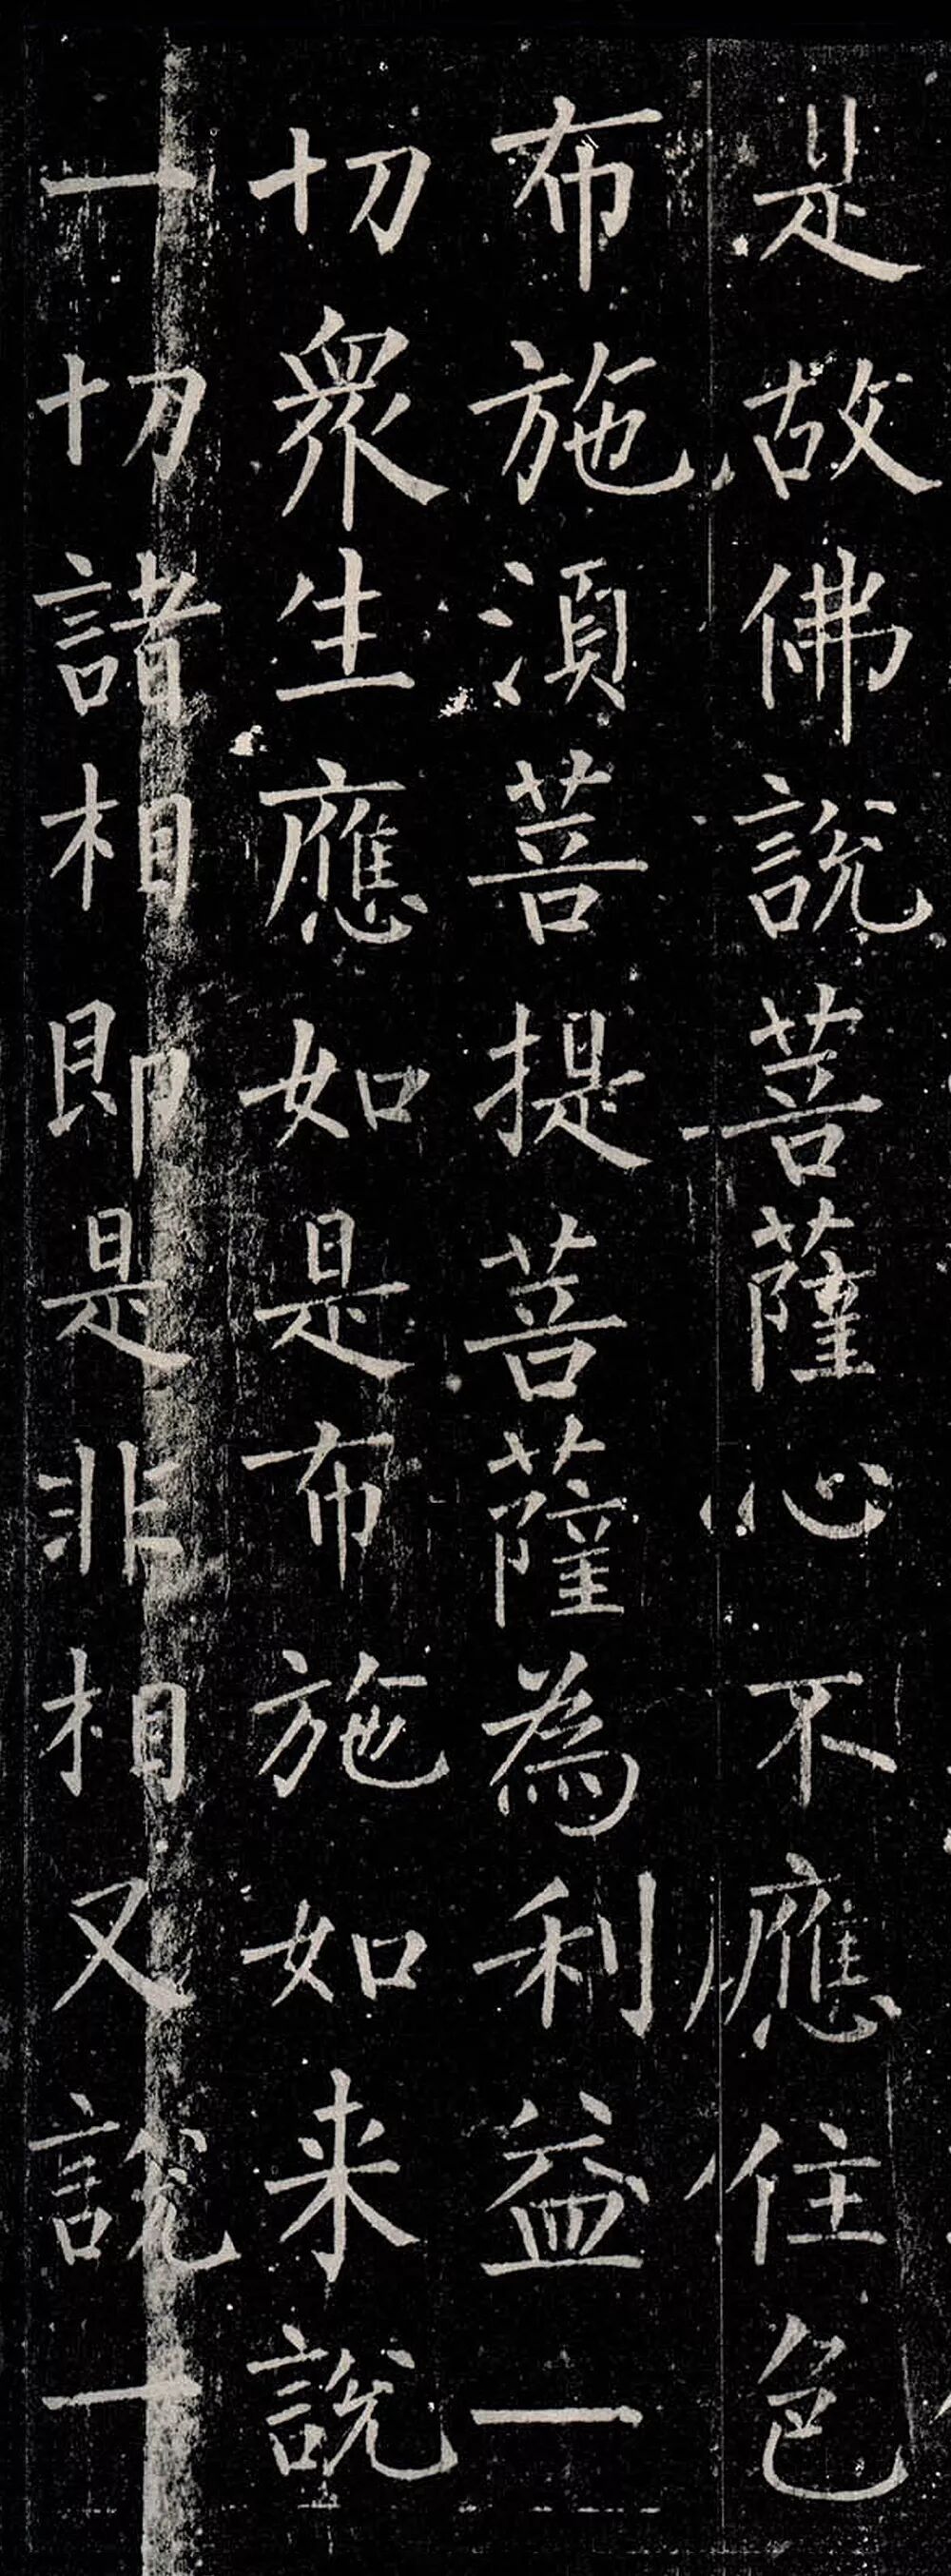 是故佛說菩薩心不應住色
布施湏菩提菩薩為利益一
切衆生應如是布施如来說
一切諸相即是非相又說一